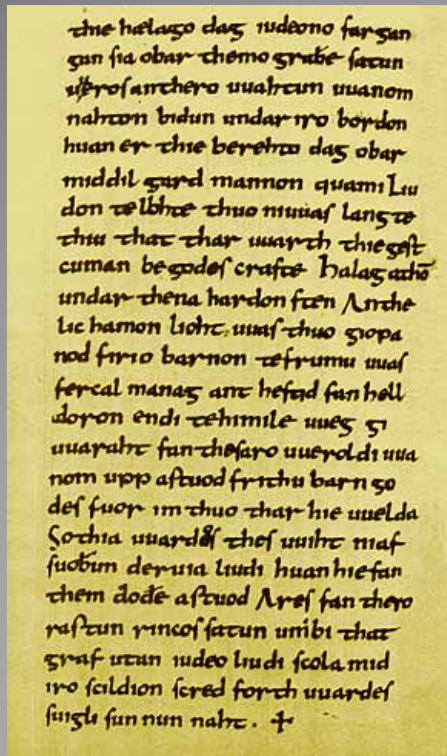 thie hælago dag iudeono fargan
gan sia obar themo graƀe satun
uueros an thero uuahtun uuanom
nahton bidun undar iro bordon
huan er thie berehto dag obar
middil gard mannon quami Liu
don te liƀhte thuo ni uuas lang te
thiu that thar uuarth thie gest
cuman be godes crafte halag athō
undar thena hardon sten An the
lic hamon lioht uuas thuo giopa
nod firio barnon te frumu uuas
fercal manag ant heftid fan hell
doron endi te himile uueg gi
uuaraht fan thesaro uueroldi uua
nom upp astuod frithu barn go
des fuor im thuo thar hie uuelda
So thia uuardos thes uuiht ni af
suoƀun deruia liudi huan hie fan
them dode astuod Ares fan thero
rastun rincos satun umbi that
graf utan iudeo liudi scola mid
iro scildion scred forth uuardes
suigli sunnun naht. ✝